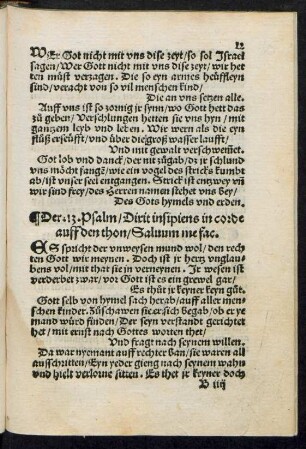 12
WEr Got nicht mit vns dise zeyt/so sol Israel
sagen/Wer Gott nicht mit vns dise zeyt/wir het
ten müst verzagen. Die so eyn armes heüffleyn
sind/veracht von so vil menschen kind/
Die an vns setzen alle.
Auff vns ist so zornig jr synn/wo Gott hett das
zů geben/Verschlungen hetten sie vns hyn/mit
gantzem leyb vnd leben. Wir wern als die eyn
flůß erseüfft/vnd über die groß wasser laufft/
Vnd mit gewalt verschwemet.
Got lob vnd danck/der nit zůgab/dz jr schlund
vns möcht fangē/wie ein vogel des stricks kumbt
ab/ist vnser seel entgangen. Strick ist entzwey vñ
wir sind frey/des Herren namen stehet vns bey/
Des Gots hymels vnd erden.
¶Der .13. Psalm/Dixit insipiens in corde
auff den thon/Saluum me fac.
ES spricht der vnweysen mund wol/den rech
ten Gott wir meynen. Doch ist jr hertz vnglau
bens vol/mit that sie jn verneynen. Je wesen ist
verderbet zwar/vor Got ist es ein grewel gar/
Es thůt jr keyner keyn gůt.
Gott selb von hymel sach herab/auff aller men
schen kinder. Zůschawen sie er sich begab/ob er ye
mand würd finden/Der seyn verstandt gerichtet
het/mit ernst nach Gottes worten thet/
Vnd fragt nach seynem willen.
Da war nyemant auff rechter ban/sie waren all
außschritten/Eyn yeder gieng nach seynem wahn
vnd hielt verlorne sitten. Es thet jr keyner doch
B iiij